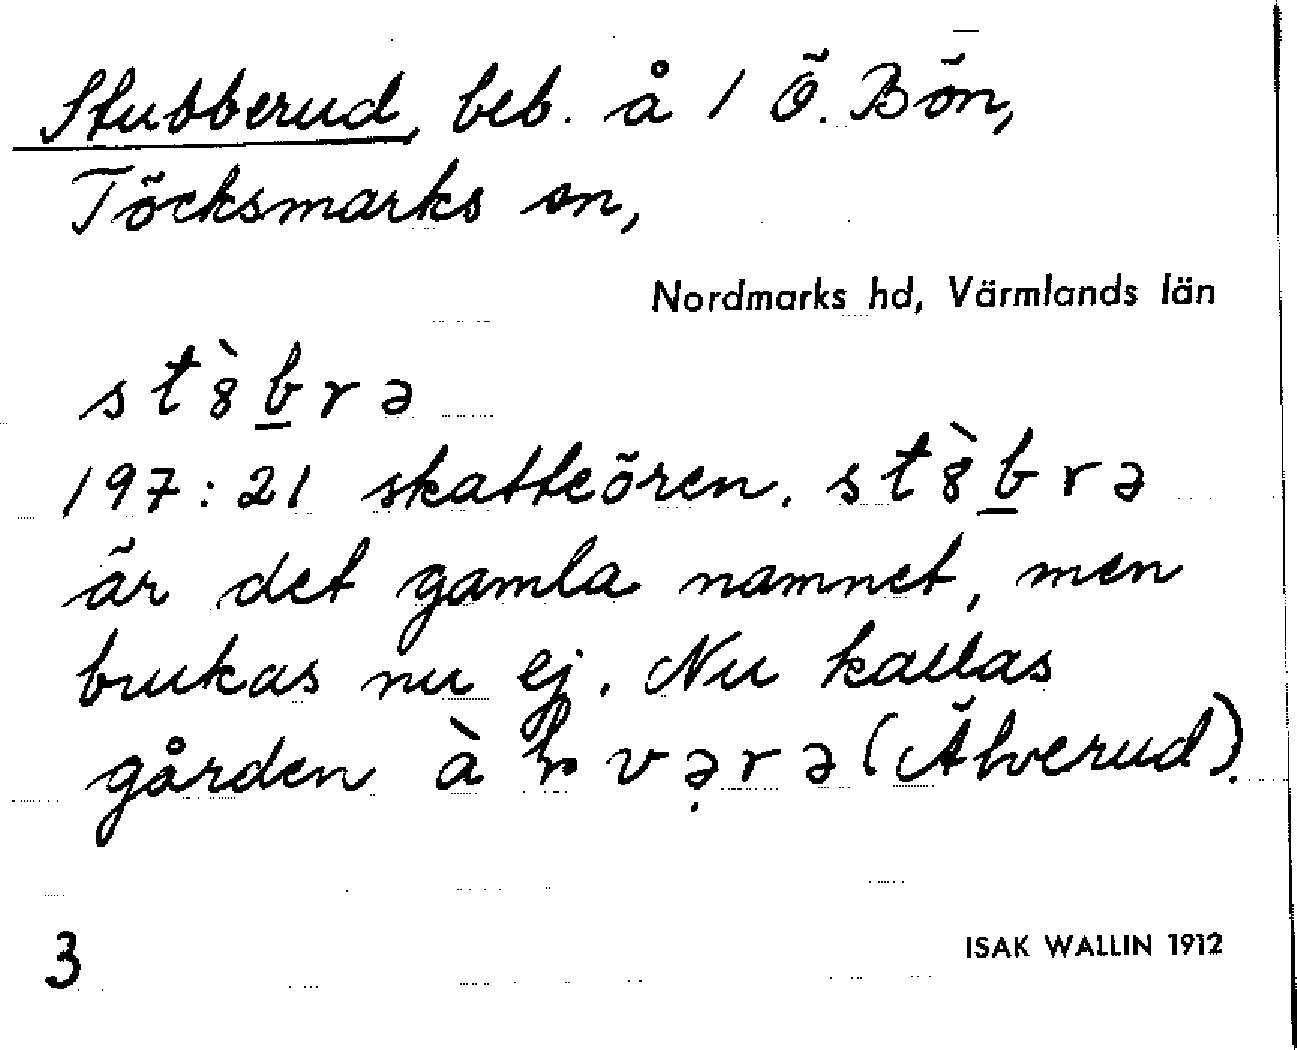 Stubberud, beb. å 1 Ö. Bön,
Töcksmarks sn,
Nordmarks hd, Värmlands län
st8̀b̲rə
197:21 skatteören. st8̀b̲rə
är det gamla namnet, men
brukas nu ej. Nu kallas
gården (Älverud).
3
ISAK WALLIN 1912